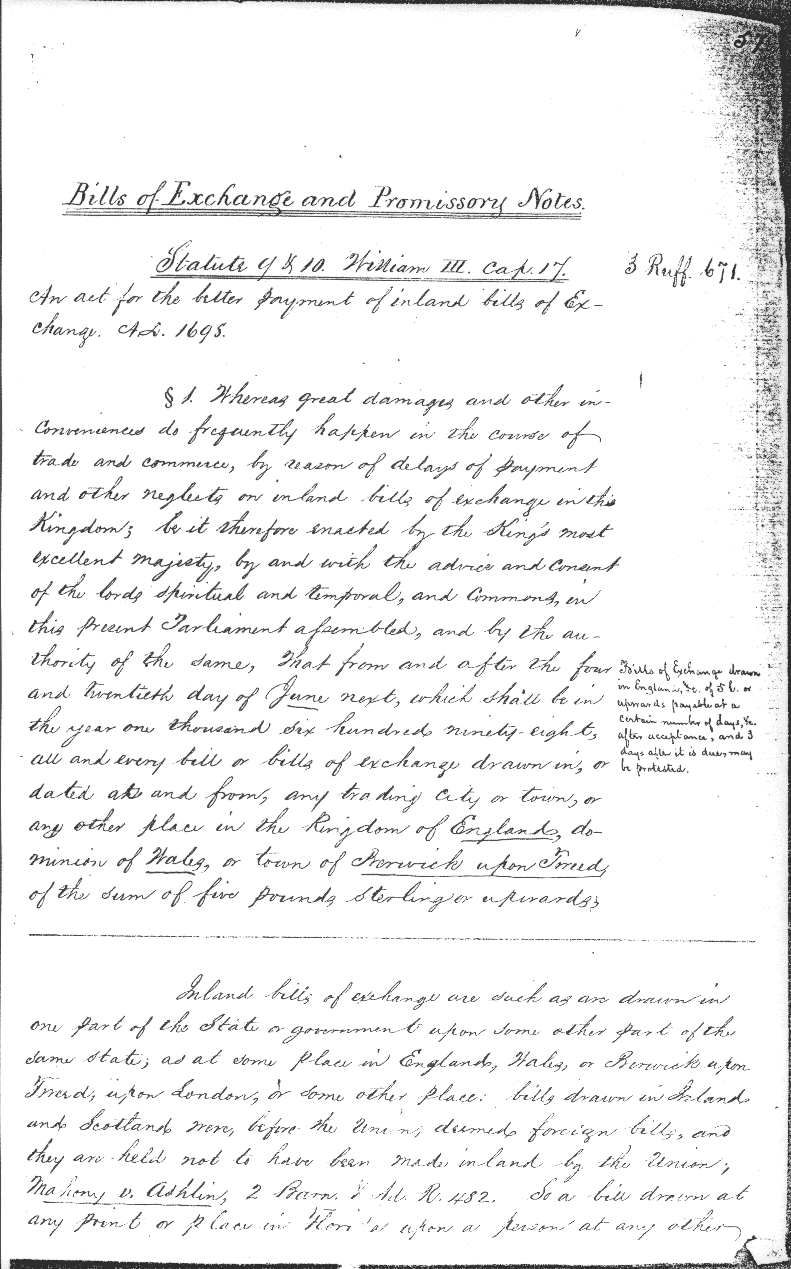 57
Bills of Exchange and Promissory Notes.
Statute 9 & 10. William III. Cap. 17.
3 Ruff. 671.
An act for the better payment of inland bills of Ex-
change. A.D. 1698.
§ 1. Whereas great damages and other in-
conveniences do frequently happen in the course of
trade and commerce, by reason of delays of payment
and other neglects on inland bills of exchange in this
Kingdom; be it therefore enacted by the King's most
excellent majesty, by and with the advice and consent
of the lords spiritual and temporal, and Commons, in
this present Parliament assembled, and by the au-
thority of the same, That from and after the four
and twentieth day of June next, which shall be in
the year one thousand six hundred ninety-eight,
all and every bill or bills of exchange drawn in, or
dated at and from, any trading city or town, or
any other place in the Kingdom of England, do-
minion of Wales, or town of Berwick upon Tweed,
of the sum of five pounds sterling or upwards,
Bills of Exchange drawn
in England, &c. of 5 £. or
upwards payable at a
certain number of days, &c.
after acceptance, and 3
days after it is due, may
be protested.
Inland bills of exchange are such as are drawn in
one part of the State or government upon some other part of the
same state; as at some place in England, Wales, or Berwick upon
Tweed, upon London, or some other place: bills drawn in Ireland
and Scotland were, before the Union, deemed foreign bills, and
they are held not to have been made inland by the Union;
Mahony v. Ashlin, 2 Barn. & Ad. R. 482. So a bill drawn at
any point or place in Flori a upon a person at any other